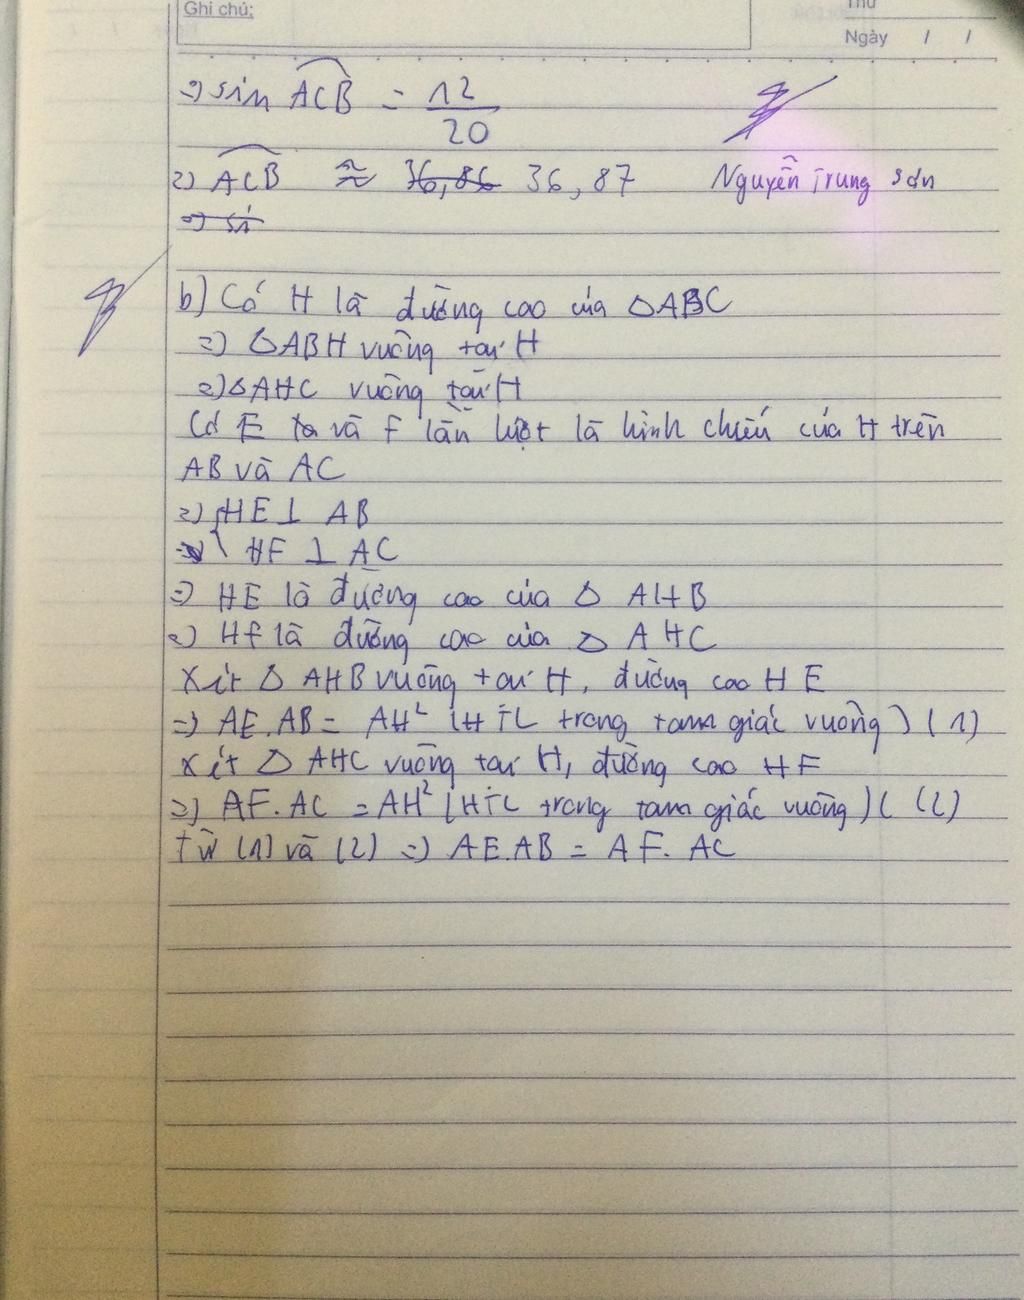 Ghi chú:
Thứ
Ngày / /
=) sin ACB = 12/20
=) ACB ≈ 36,86 36,87
Nguyễn Trung Sơn
=) si
b) Có H là đường cao của △ABC
=) △ABH vuông tại H
=) △AHC vuông tại H
Có E và F lần lượt là hình chiếu của H trên
AB và AC
=) HE ⊥ AB
HF ⊥ AC
=) HE là đường cao của △ AHB
=) HF là đường cao của △ AHC
Xét △ AHB vuông tại H, đường cao HE
=) AE.AB = AH² (HTL trong tam giác vuông) (1)
Xét △ AHC vuông tại H, đường cao HF
=) AF.AC = AH² (HTL trong tam giác vuông) ( (2)
Từ (1) và (2) =) AE.AB = AF.AC